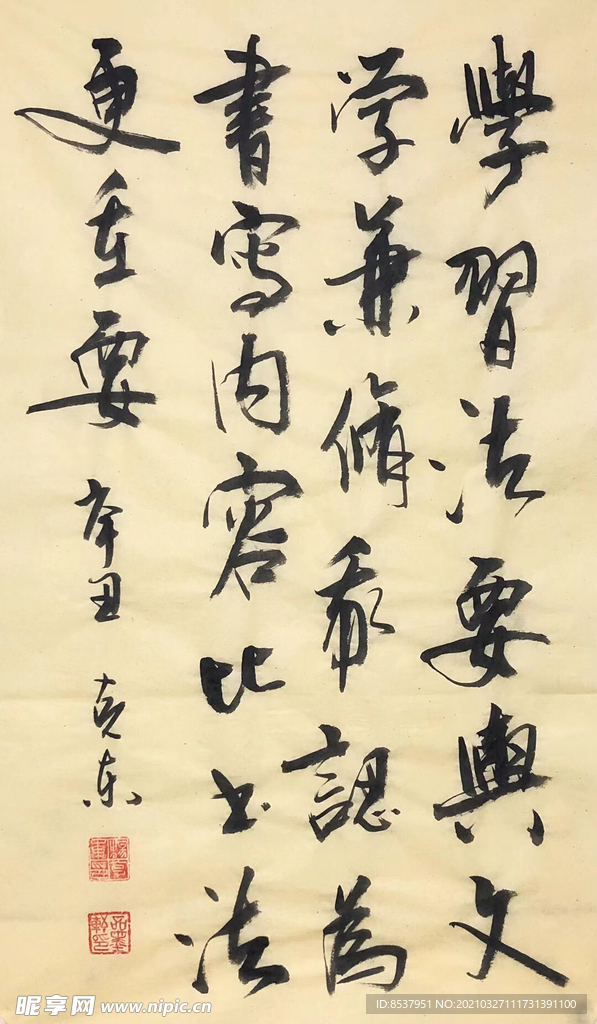 學習法要與文
学兼脩我認為
書寫内容比书法
更重要 辛丑 克东
昵享网 www.nipic.cn
ID:8537951 NO:20210327111731391100